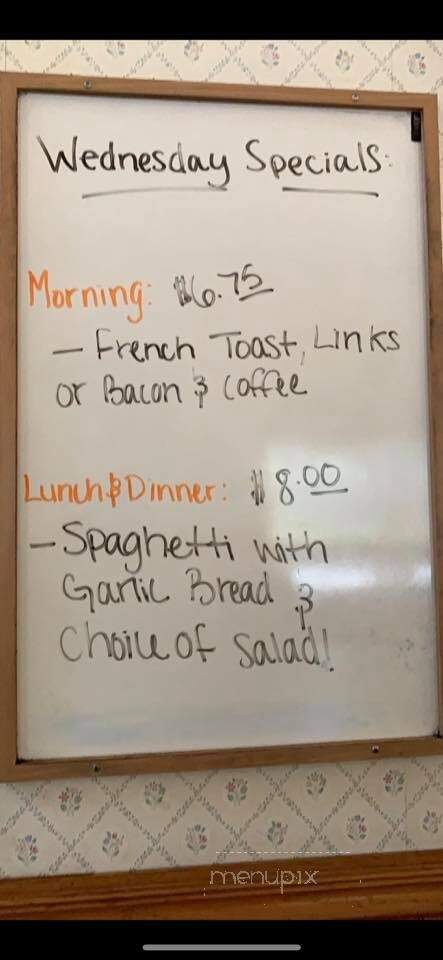 Wednesday Specials:
Morning: $6.75
- French Toast, Links
or Bacon & Coffee
Lunch & Dinner: $8.00
- Spaghetti with
Garlic Bread &
Choice of Salad!
menupix